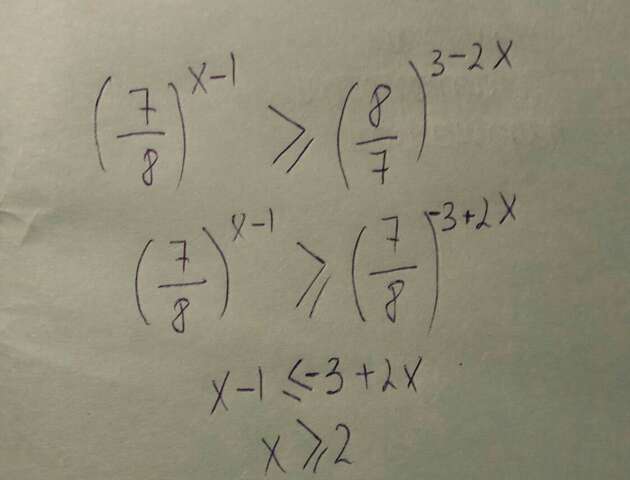 (7/8)^(x-1) ⩾ (8/7)^(3-2x)
(7/8)^(x-1) ⩾ (7/8)^(-3+2x)
x-1 ≤ -3+2x
x ⩾ 2